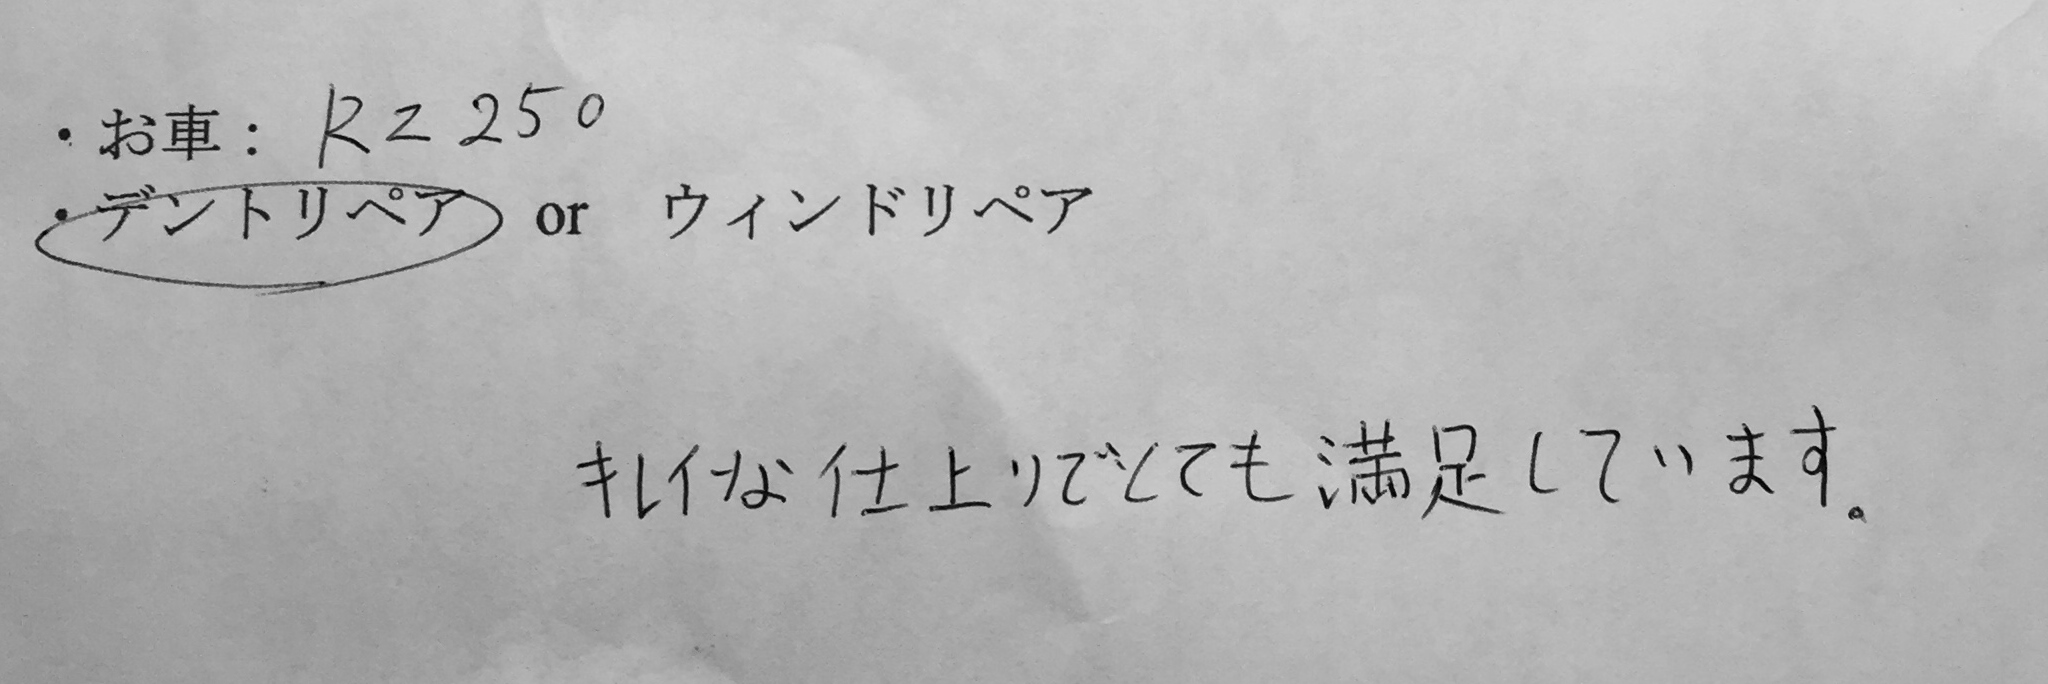 ・お車： RZ250
・デントリペア or ウィンドリペア
キレイな仕上りでとても満足しています。